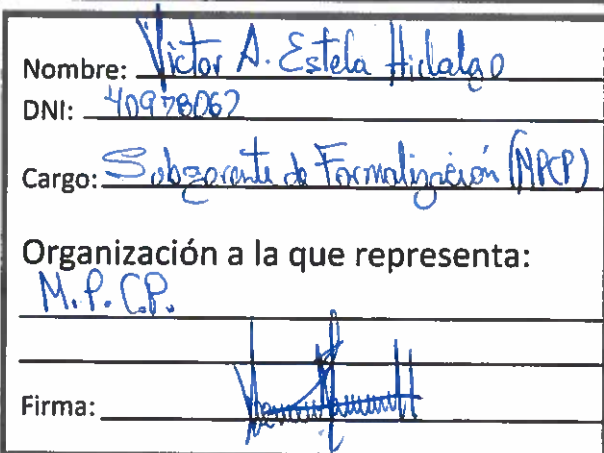 Nombre: Victor A. Estela Hidalgo
DNI: 40978062
Cargo: Subgerente de Formalización (MPCP)
Organización a la que representa:
M.P.C.P.
Firma: